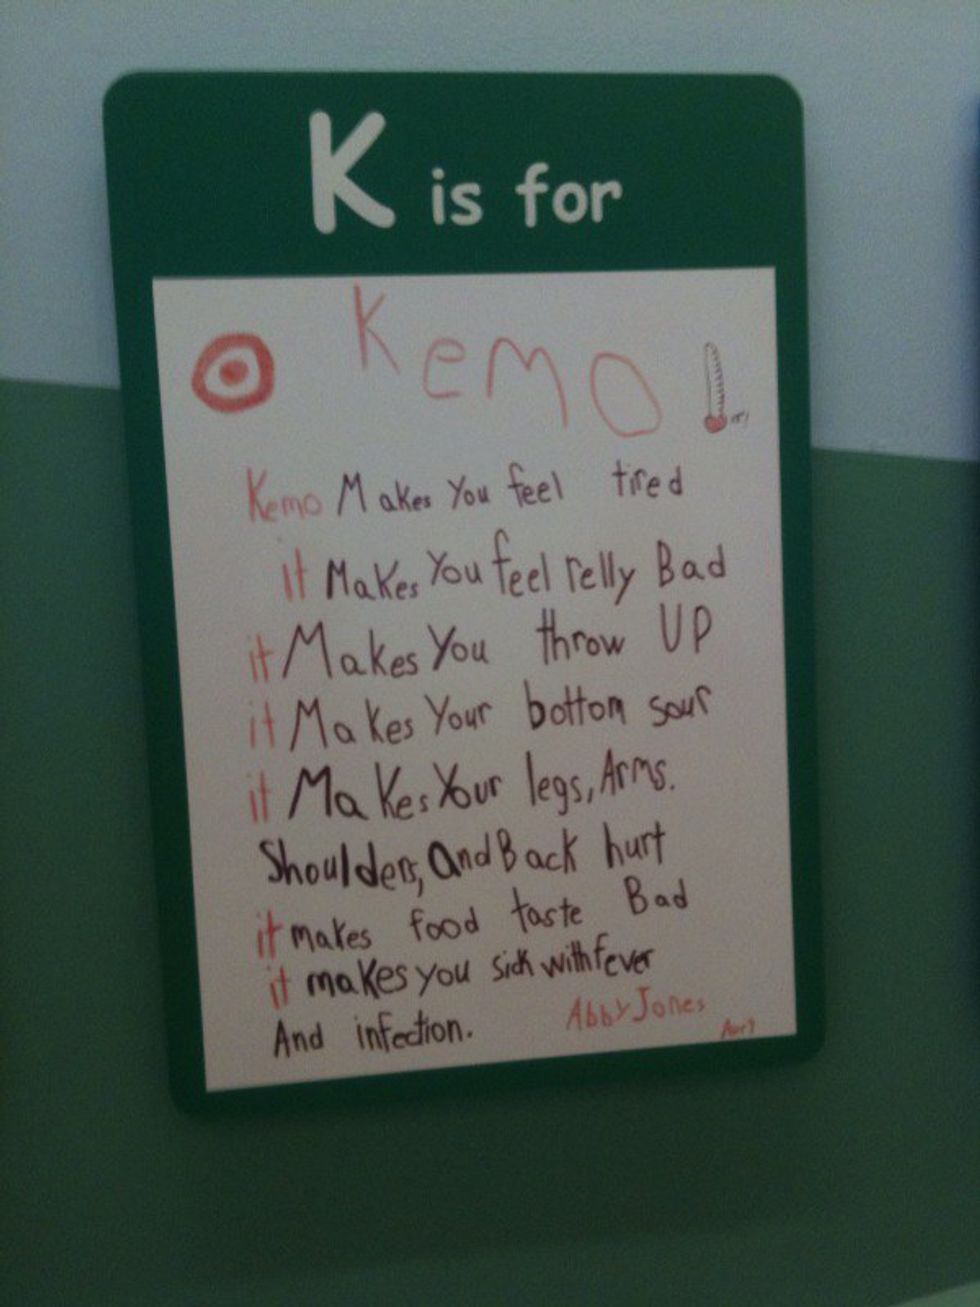 K is for
Kemo
Kemo Makes You feel tired
it Makes You feel relly Bad
it Makes You throw UP
it Makes Your bottom sour
it Makes Your legs, Arms.
Shoulders, And Back hurt
it makes food taste Bad
it makes you sick with fever
And infection.
Abby Jones